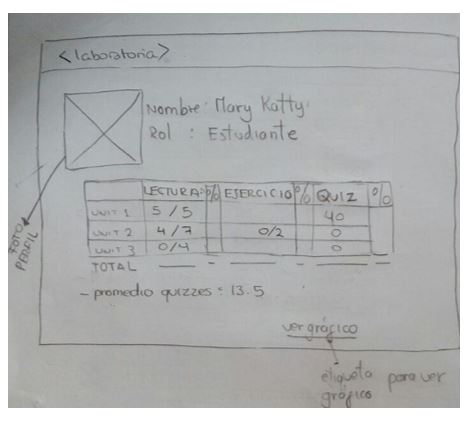 <laboratoria>
Nombre: Mary Katty
Rol : Estudiante
FOTO PERFIL
LECTURAS % EJERCICIO % QUIZ %
UNIT 1 5/5 40
UNIT 2 4/7 0/2 0
UNIT 3 0/4 0
TOTAL
- promedio quizzes : 13.5
ver gráfico
etiqueta para ver
gráfico